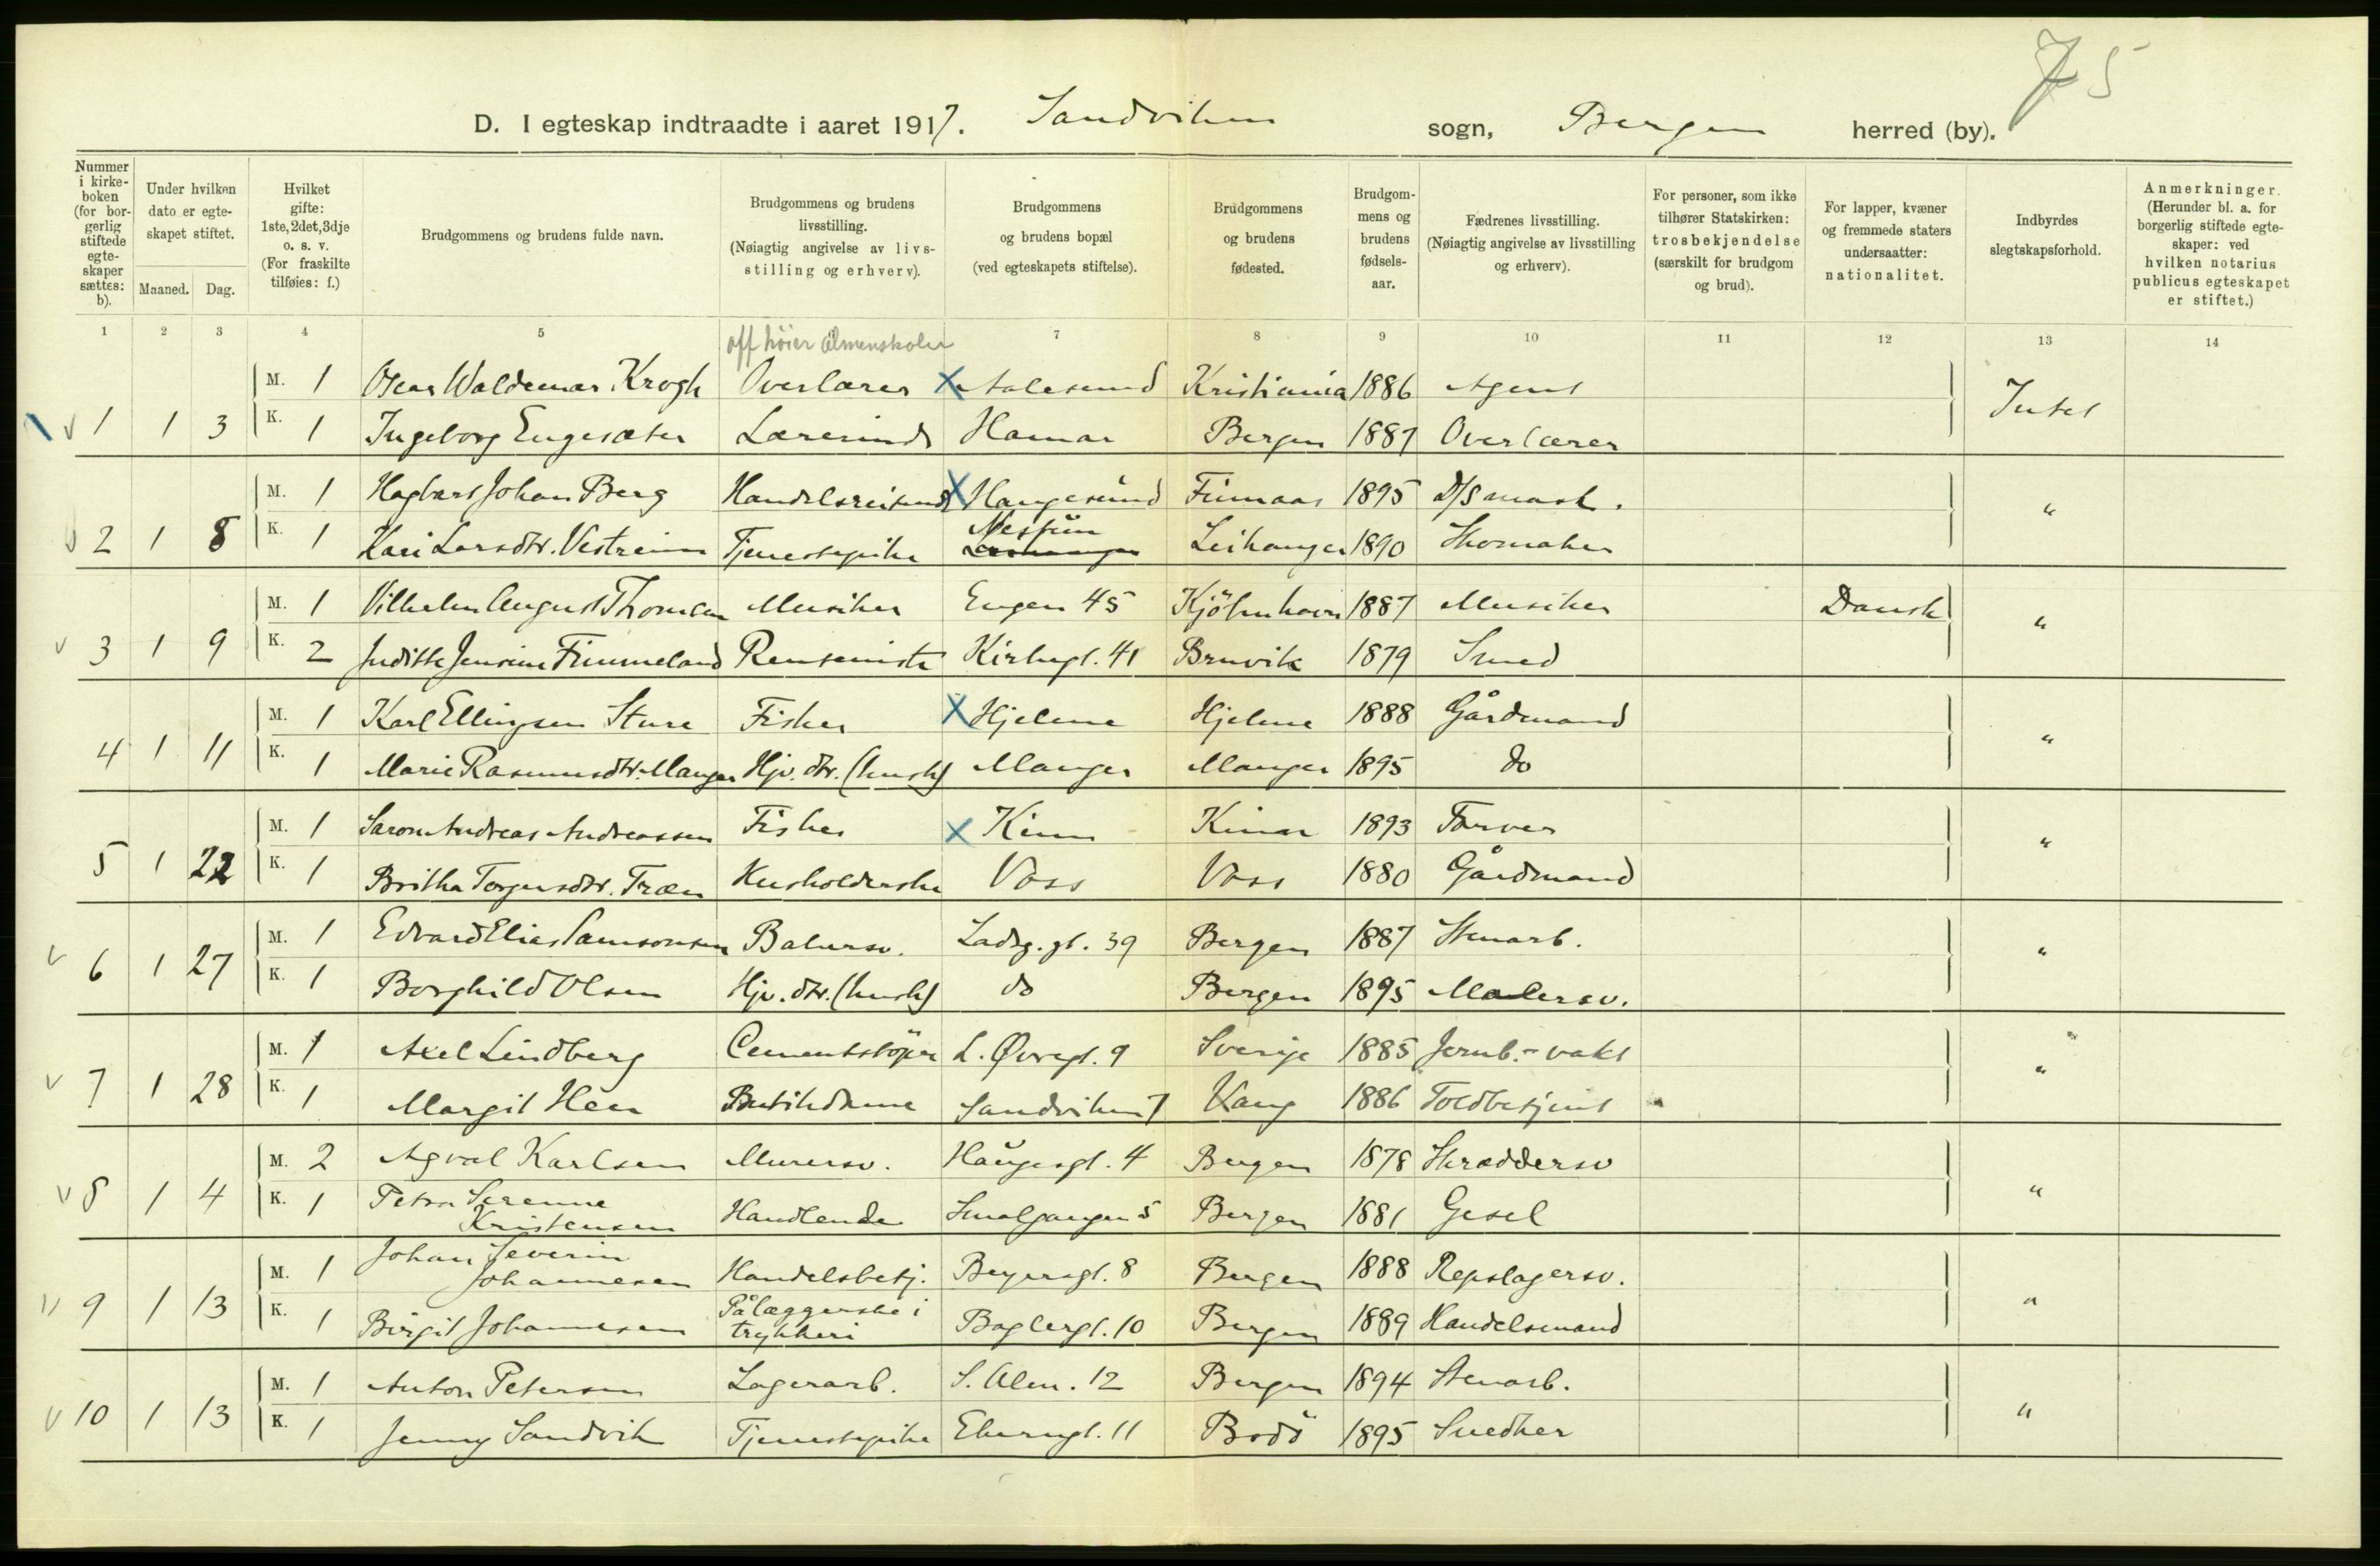 75
D. I egteskap indtraadte i aaret 1917. Sandviken sogn, Bergen herred (by).
Nummer i kirkeboken (for borgerlig stiftede egteskaper sættes: b).
Under hvilken dato er egteskapet stiftet.
Maaned. Dag.
Hvilket gifte: 1ste, 2det, 3dje o. s. v. (For fraskilte tilføies: f.)
Brudgommens og brudens fulde navn.
Brudgommens og brudens livsstilling. (Nøiagtig angivelse av livsstilling og erhverv).
Brudgommens og brudens bopæl (ved egteskapets stiftelse).
Brudgommens og brudens fødested.
Brudgommens og brudens fødselsaar.
Fædrenes livsstilling. (Nøiagtig angivelse av livsstilling og erhverv).
For personer, som ikke tilhører Statskirken: trosbekjendelse (særskilt for brudgom og brud).
For lapper, kvæner og fremmede staters undersaatter: nationalitet.
Indbyrdes slegtskapsforhold.
Anmerkninger. (Herunder bl. a. for borgerlig stiftede egteskaper: ved hvilken notarius publicus egteskapet er stiftet.)
1 2 3 4 5 7 8 9 10 11 12 13 14
off høier almenskoler
M. 1 Oscar Waldemar Krogh Overlærer X Aalesund Kristiania 1886 Agent
1 1 3 K. 1 Ingeborg Engesæter Lærerinde Hamar Bergen 1887 Overlærer Intet
M. 1 Hagbart Johan Berg Handelsreisende X Haugesund Finnaas 1895 D/S mask.
2 1 8 K. 1 Kari Larsdtr. Vestreim Tjenestepike Nestun Leikanger 1890 Skomaker "
M. 1 Vilhelm August Thomsen Musiker Engen 45 Kjöbenhavn 1887 Musiker Dansk
3 1 9 K. 2 Juditte Jensine Fimmeland Rensemiste Kirkegt. 41 Bruvik 1879 Smed "
M. 1 Karl Ellingsen Sture Fisker X Hjelme Hjelme 1888 Gårdmand
4 1 11 K. 1 Marie Rasmusdtr. Manger Hjv. dtr. (hush) Manger Manger 1895 do "
M. 1 Andreas Andreassen Fisker X Kinn Kinn 1893 Farver
5 1 22 K. 1 Britha Torgersdtr. Træen Husholderske Voss Voss 1880 Gårdmand "
M. 1 Edvard Elias Samsonsen Bakersv. Ladeg.gt. 39 Bergen 1887 Stenarb.
6 1 27 K. 1 Borghild Olsen Hjv. dtr. (hush) do Bergen 1895 Malersv. "
M. 1 Axel Lindberg Cementstöper L. Øvregt. 9 Sverige 1885 Jernb.-vakt "
7 1 28 K. 1 Margit Heen Butikdame Sandviken 7 Vang 1886 Toldbetjent "
M. 2 Agval Karlsen Murersv. Haugesgt. 4 Bergen 1878 Skræddersv
8 1 4 K. 1 Petra Serenne Kristensen Handlende Smalgangen 5 Bergen 1881 Gesel "
M. 1 Johan Severin Johannesen Handelsbetj. Beyersgt. 8 Bergen 1888 Repslagersv.
9 1 13 K. 1 Birgit Johannesen Pålæggerske i trykkeri Baglergt. 10 Bergen 1889 Handelsmand "
M. 1 Anton Petersen Lagerarb. S. Alm. 12 Bergen 1894 Stenarb.
10 1 13 K. 1 Jenny Sandvik Tjenestepike Ekrengt. 11 Bodö 1895 Snedker "